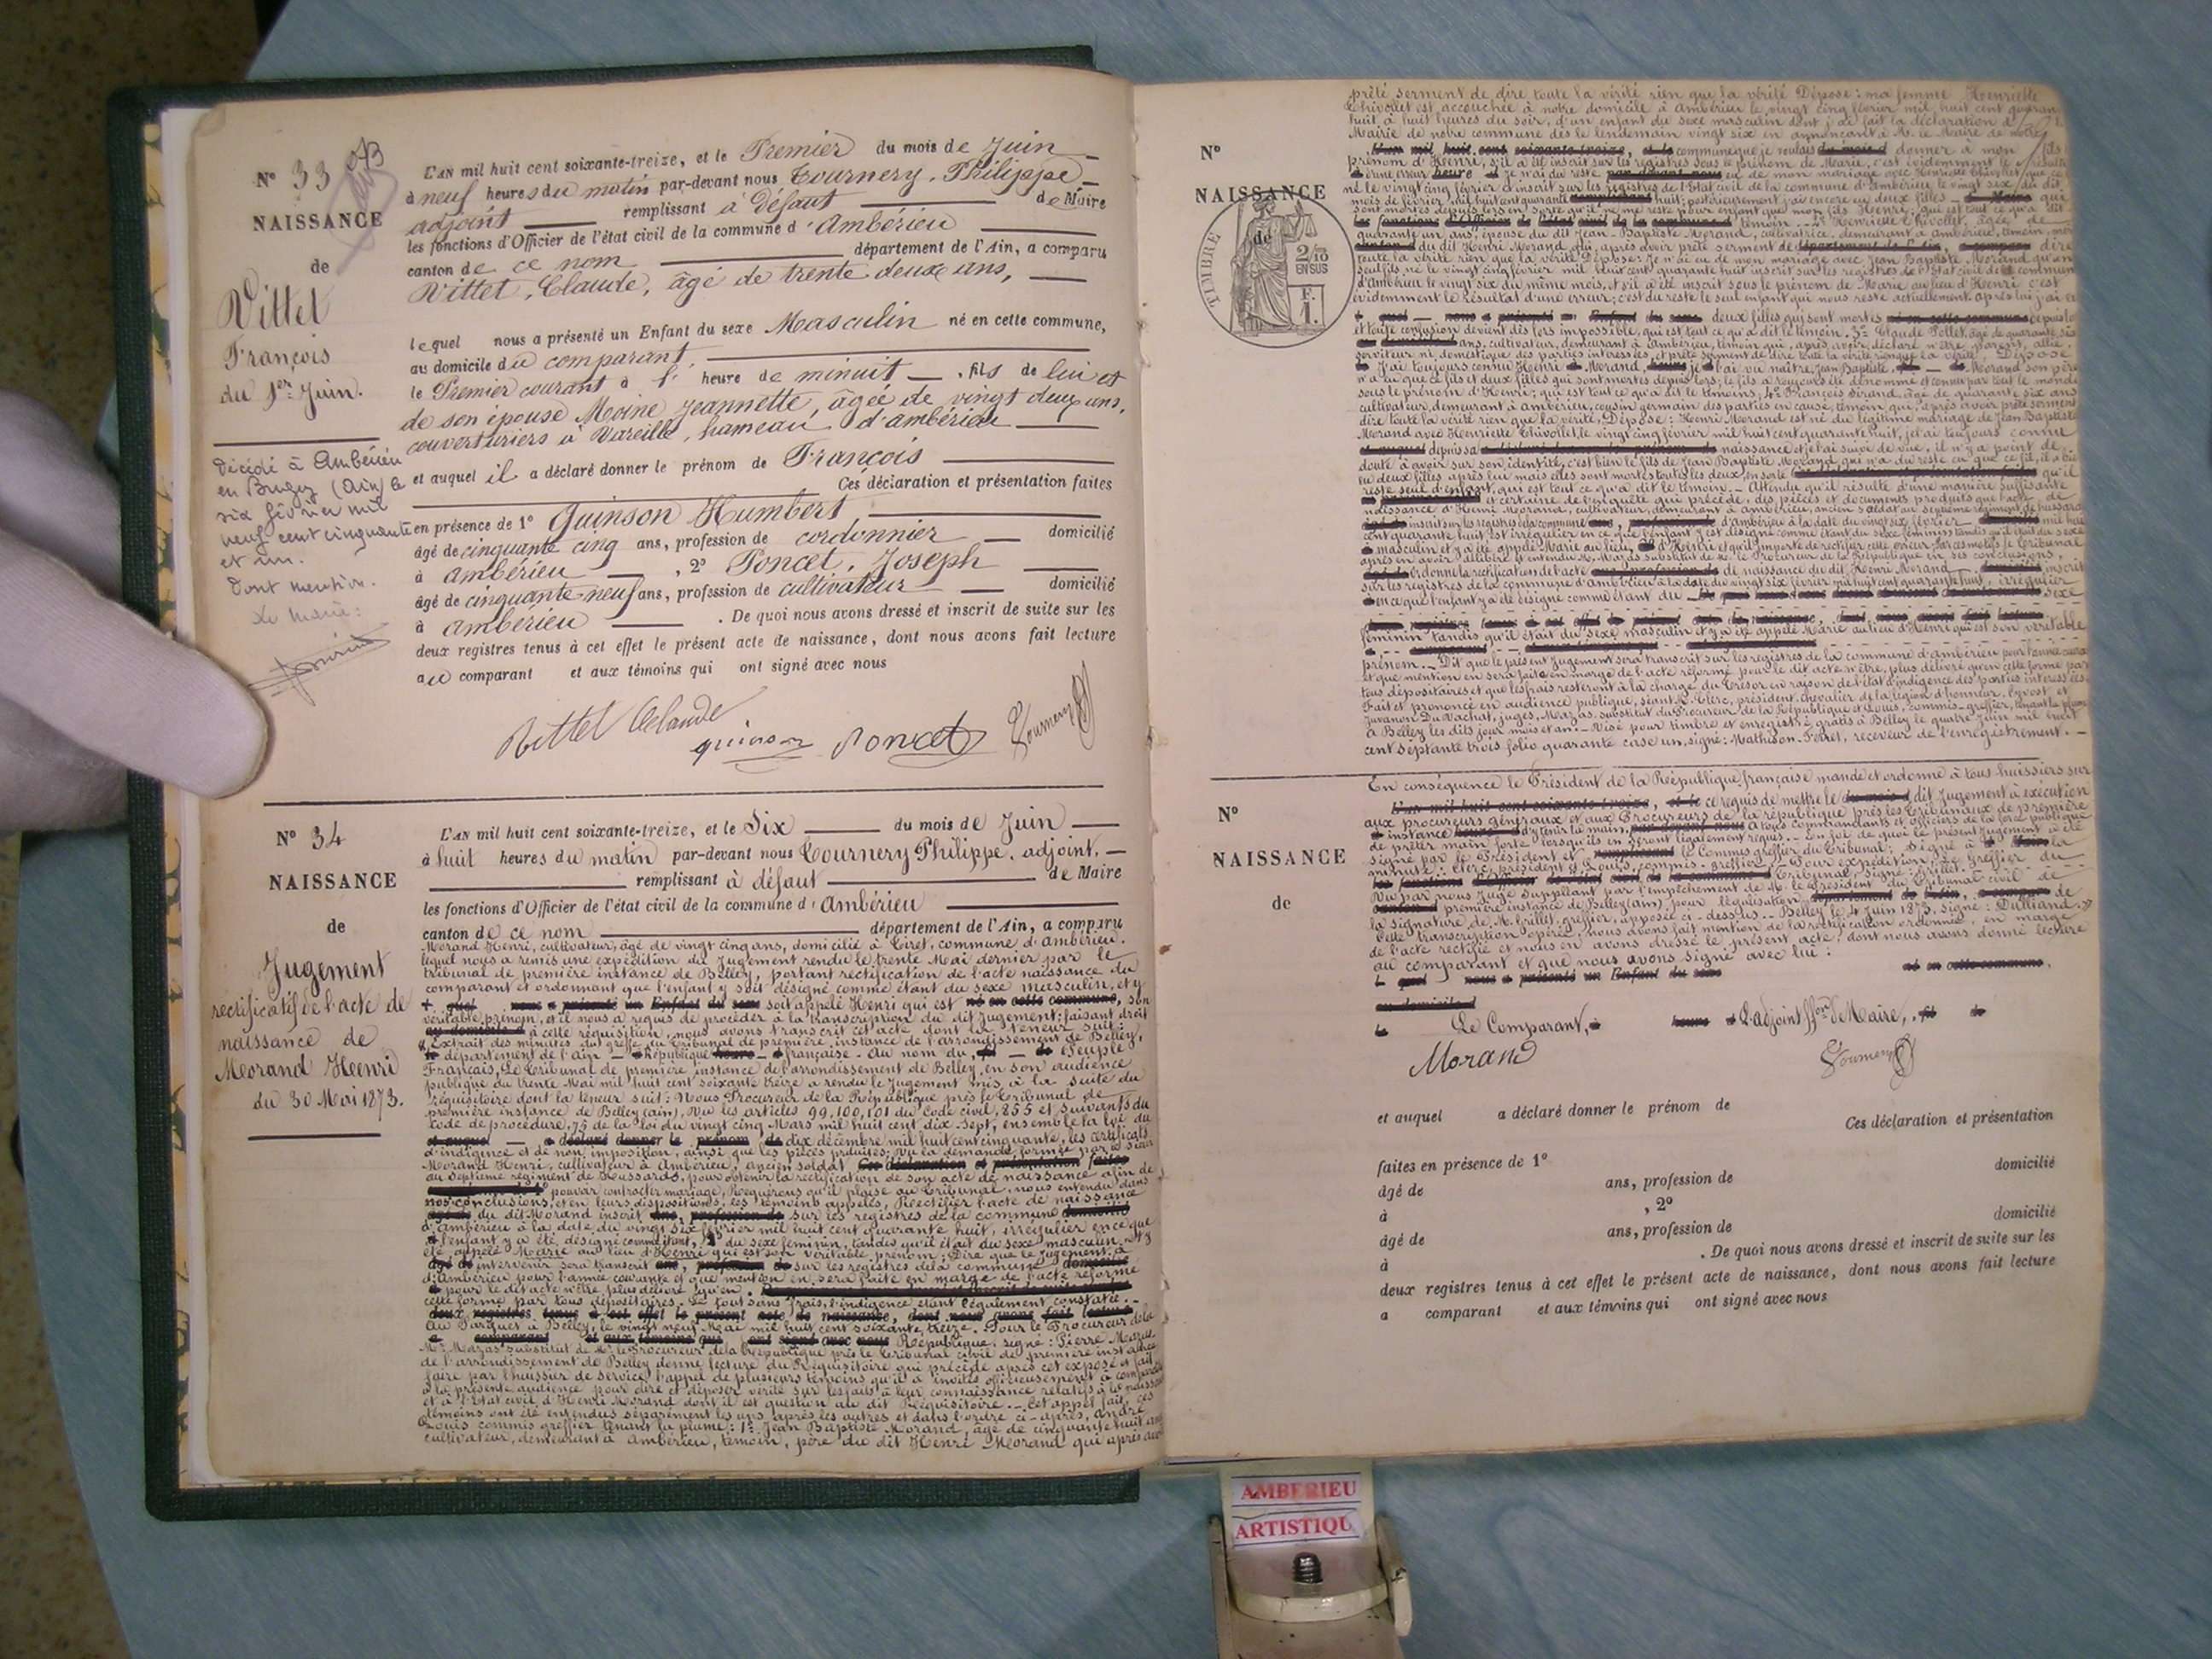 N° 33
NAISSANCE
de
Vittet
François
du 1er Juin.
Décédé à Ambérieu
en Bugey (Ain) le
six février mil
neuf cent cinquante
et un.
Dont mention.
Le Maire:
L'AN mil huit cent soixante-treize, et le Premier du mois de Juin
à neuf heures du matin par-devant nous Tournery, Philippe
adjoint remplissant à défaut de Maire
les fonctions d'Officier de l'état civil de la commune d'Ambérieu
canton de ce nom département de l'Ain, a comparu
Vittet, Claude, âgé de trente deux ans,
lequel nous a présenté un Enfant du sexe Masculin né en cette commune,
au domicile du comparant,
le Premier courant à 1' heure de minuit , fils de lui et
de son épouse Moine Jeannette, âgée de vingt deux ans,
couverturiers à Vareille, hameau d'ambérieu
et auquel il a déclaré donner le prénom de François
Ces déclaration et présentation faites
en présence de 1° Quinson Humbert
âgé de cinquante cinq ans, profession de cordonnier domicilié
à ambérieu , 2° Poncet, Joseph
âgé de cinquante-neuf ans, profession de cultivateur domicilié
à ambérieu . De quoi nous avons dressé et inscrit de suite sur les
deux registres tenus à cet effet le présent acte de naissance, dont nous avons fait lecture
au comparant et aux témoins qui ont signé avec nous
Vittet Claude quinson Poncet Tournery
N° 34
NAISSANCE
de
Jugement
rectificatif de l'acte de
naissance de
Morand Henri
du 30 Mai 1873.
L'AN mil huit cent soixante-treize, et le Six du mois de Juin
à huit heures du matin par-devant nous Tournery Philippe, adjoint,
remplissant à défaut de Maire
les fonctions d'Officier de l'état civil de la commune d'Ambérieu
canton de ce nom département de l'Ain, a comparu
Morand Henri, cultivateur, âgé de vingt cinq ans, domicilié à Tiret, commune d'Ambérieu.
lequel nous a remis une expédition du Jugement rendu le trente Mai dernier par le
tribunal de première instance de Belley, portant rectification de l'acte naissance du
comparant et ordonnant que l'enfant y soit désigné comme étant du sexe masculin, et y
soit appelé Henri qui est son
véritable prénom, et il nous a requis de procéder à la transcription du dit Jugement; faisant droit
à cette réquisition, nous avons transcrit cet acte dont la teneur suit:
Extrait des minutes du greffe du Tribunal de première instance de l'arrondissement de Belley,
département de l'ain — République française. Au nom du Peuple
Français, Le Tribunal de première instance de l'arrondissement de Belley, en son audience
publique du trente Mai mil huit cent soixante treize a rendu le Jugement mis à la suite du
réquisitoire dont la teneur suit: Nous Procureur de la République près le Tribunal de
première instance de Belley (ain), Vu les articles 99, 100, 101 du Code civil, 855 et suivants du
Code de procédure, 75 de la loi du vingt cinq Mars mil huit cent dix sept, ensemble la loi du
dix décembre mil huit cent cinquante, les certificats
d'indigence et de non imposition, ainsi que les pièces produites; Vu la demande formée par le sieur
Morand Henri, cultivateur à Ambérieu, ancien soldat
au septième régiment de Hussards, pour obtenir la rectification de son acte de naissance afin de
pouvoir contracter mariage, Requérons qu'il plaise au Tribunal, nous entendu dans
nos conclusions, et en leurs dispositions, les témoins appelés, Rectifier l'acte de naissance
du dit Morand inscrit sur les registres de la commune
d'ambérieu à la date du vingt six février mil huit cent quarante huit, irrégulier en ce que
l'enfant y a été désigné comme étant du sexe féminin, tandis qu'il était du sexe masculin, et y
été appelé Marie au lieu d'Henri qui est son véritable prénom; Dire que le jugement à
intervenir sera transcrit sur les registres de la commune
d'Ambérieu pour l'année courante et que mention en sera faite en marge de l'acte réformé
pour le dit acte n'être plus délivré qu'en
cette forme par tous dépositaires. Le tout sans frais, l'indigence étant légalement constatée.
Au Parquet à Belley, le vingt neuf Mai mil huit cent soixante treize. Pour le Procureur de la
République, signé: Pierre Mazas
Mr Mazas substitut de Mr le Procureur de la République près le Tribunal civil de première instance
de l'arrondissement de Belley donne lecture du Réquisitoire qui précède après cet exposé et fait
faire par l'huissier de service l'appel de plusieurs témoins qu'il a invités officieusement à comparaître
à la présente audience pour dire et déposer vérité sur les faits à leur connaissance relatifs à la naissance
et à l'Etat civil d'Henri Morand dont il est question au dit Réquisitoire. Cet appel fait, ces
témoins ont été entendus séparément les uns après les autres et dans l'ordre ci-après, André
Louis commis greffier tenant la plume: 1° Jean Baptiste Morand, âgé de cinquante huit ans
cultivateur, demeurant à Ambérieu, témoin, père du dit Henri Morand qui après avoir
N°
NAISSANCE
de
TIMBRE
2/10
EN SUS
F.
1.
prêté serment de dire toute la vérité rien que la vérité Dépose: ma femme Henriette
Chivollet est accouchée à notre domicile à Ambérieu le vingt cinq février mil huit cent quarante
huit à huit heures du soir, d'un enfant du sexe masculin dont j'ai fait la déclaration à la
Mairie de notre commune dès le lendemain vingt six en annonçant à M. le Maire de notre
commune que je voulais donner à mon fils
prénom d'Henri, s'il a été inscrit sur les registres sous le prénom de Marie, c'est évidemment le résultat
d'une erreur je n'ai du reste eu de mon mariage avec Henriette Chivollet que ce
né le vingt cinq février et inscrit sur les registres de l'Etat civil de la commune d'ambérieu le vingt six du dit
mois de février mil huit cent quarante huit; postérieurement j'ai encore eu deux filles qui
sont mortes depuis lors en sorte qu'il ne me reste pour enfant que mon fils Henri; qui est tout ce qu'a dit
témoin. 2° Henriette Chivollet, âgée de
quarante un ans, épouse du dit Jean-Baptiste Morand, cultivatrice, demeurant à ambérieu, témoin, mère
du dit Henri Morand qui, après avoir prêté serment de dire
toute la vérité rien que la vérité Dépose: Je n'ai eu de mon mariage avec Jean Baptiste Morand qu'un
seul fils né le vingt cinq février mil huit cent quarante huit inscrit sur les registres de l'Etat civil de la commune
d'ambérieu le vingt six du même mois, et s'il a été inscrit sous le prénom de Marie au lieu d'Henri c'est
évidemment le résultat d'une erreur; c'est du reste le seul enfant qui nous reste actuellement, après lui j'ai eu
deux filles qui sont mortes depuis
et toute confusion devient dès lors impossible, qui est tout ce qu'a dit le témoin. 3° Claude Pollet, âgé de quarante six
ans, cultivateur, demeurant à ambérieu, témoin qui, après avoir déclaré n'être parent, allié,
serviteur ni domestique des parties intéressées, et prêté serment de dire toute la vérité rien que la vérité, Dépose
J'ai toujours connu Henri Morand, je l'ai vu naître, Jean Baptiste Morand son père
n'a eu que ce fils et deux filles qui sont mortes depuis lors; le fils a toujours été dénommé et connu par tout le monde
sous le prénom d'Henri; qui est tout ce qu'a dit le témoin; 4° François Sirand, âgé de quarante six ans
cultivateur, demeurant à ambérieu, cousin germain des parties en cause, témoin qui, après avoir prêté serment
dire toute la vérité rien que la vérité, Dépose: Henri Morand est né du légitime mariage de Jean Baptiste
Morand avec Henriette Chivollet, le vingt cinq février mil huit cent quarante huit, je l'ai toujours connu
depuis sa naissance et je l'ai suivi de vue, il n'y a point de
doute à avoir sur son identité, c'est bien le fils de Jean Baptiste Morand qui n'a du reste eu que ce fils, il a bien
eu deux filles après lui mais elles sont mortes toutes les deux, en sorte qu'il
reste seul d'enfant, qui est tout ce qu'a dit le témoin. Attendu qu'il résulte d'une manière suffisante
et certaine de l'enquête qui précède, des pièces et documents produits que l'acte de
naissance d'Henri Morand, cultivateur, demeurant à ambérieu, ancien soldat au septième régiment de hussards
inscrit sur les registres de la commune d'ambérieu à la date du vingt six février mil huit
cent quarante huit est irrégulier en ce que l'enfant y est désigné comme étant du sexe féminin tandis qu'il était du sexe
masculin et y a été appelé Marie au lieu d'Henri et qu'il importe de rectifier cette erreur; Par ces motifs, le Tribunal
après en avoir délibéré et ouï M. Mazas substitut de M. le Procureur de la République en ses conclusions,
ordonne la rectification de l'acte de naissance du dit Henri Morand inscrit
sur les registres de la commune d'ambérieu à la date du vingt six février mil huit cent quarante huit, irrégulier
en ce que l'enfant y a été désigné comme étant du sexe
féminin tandis qu'il était du sexe masculin et y a été appelé Marie au lieu d'Henri qui est son véritable
prénom. Dit que le présent Jugement sera transcrit sur les registres de la commune d'ambérieu pour l'année
et que mention en sera faite en marge de l'acte réformé pour le dit acte n'être plus délivré qu'en cette forme par
tous dépositaires et que les frais resteront à la charge du Trésor en raison de l'état d'indigence des parties intéressées
Fait et prononcé en audience publique, séant M. Clerc, président, chevalier de la légion d'honneur, Cyvost et
Juvanon Du Vachat, juges, Mazas, substitut du Procureur de la République et Louis, commis-greffier, tenant la plume
à Belley les dits jour, mois et an. Visé pour timbre et enregistré, gratis à Belley le quatre Juin mil huit
cent septante trois folio quarante case un, signé: Mathison-Ferret, receveur de l'enregistrement.
N°
NAISSANCE
de
En conséquence le Président de la République française mande et ordonne à tous huissiers sur
L'AN mil huit cent soixante-treize, et le ce requis de mettre le dit Jugement à exécution
aux procureurs généraux et aux Procureurs de la république près les Tribunaux de première
instance d'y tenir la main, à tous commandants et officiers de la force publique
de prêter main forte lorsqu'ils en seront légalement requis. En foi de quoi le présent Jugement a été
signé par le Président et le Commis greffier du Tribunal; signé à la
minute: Clerc, président et Louis, commis-greffier. Pour expédition, Le greffier du
Tribunal, signé: Grillet.
Vu par nous Juge suppléant par l'empêchement de M. le Président du Tribunal civil de
première instance de Belley (ain) pour légalisation de
la signature de M. Grillet, greffier, apposée ci-dessus. Belley le 4 Juin 1873, signé: Dulliand.
Cette transcription opérée, nous avons fait mention de la rectification ordonnée, en marge
de l'acte rectifié et nous en avons dressé le présent acte, dont nous avons donné lecture
au comparant et que nous avons signé avec lui:
lequel nous a présenté un Enfant du sexe né en cette commune,
au domicile d
Le Comparant, L'adjoint ffons de Maire,
Morand Tournery
et auquel a déclaré donner le prénom de
Ces déclaration et présentation
faites en présence de 1° domicilié
âgé de ans, profession de
à , 2°
âgé de ans, profession de domicilié
à . De quoi nous avons dressé et inscrit de suite sur les
deux registres tenus à cet effet le présent acte de naissance, dont nous avons fait lecture
a comparant et aux témoins qui ont signé avec nous
AMBERIEU
ARTISTIQU